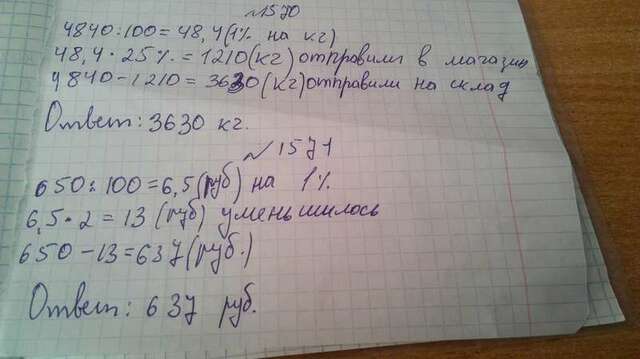 №1570
4840:100=48,4(1% на кг)
48,4·25%=1210(кг)отправили в магазин
4840-1210=3630(кг)отправили на склад
Ответ:3630 кг.
№1571
650:100=6,5(руб) на 1%
6,5·2=13(руб) уменьшилось
650-13=637(руб.)
Ответ: 637 руб.